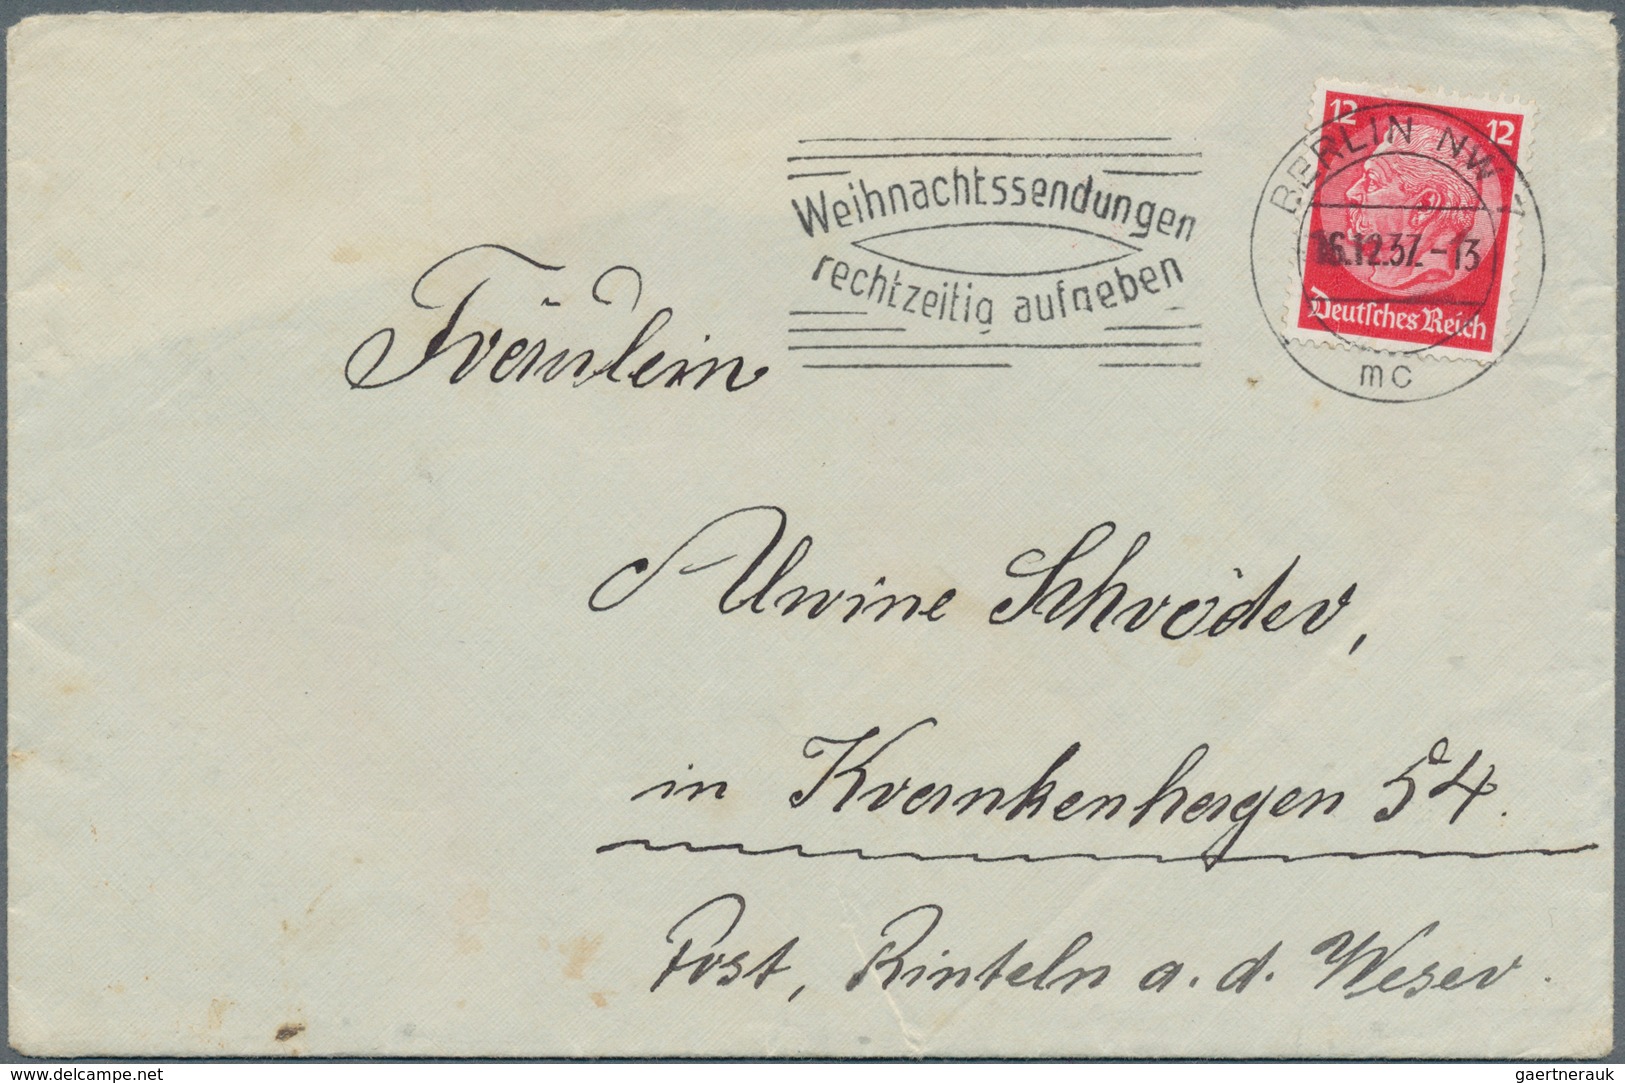 Weihnachtssendungen
rechtzeitig aufgeben
BERLIN NW 7
16.12.37.-13
mc
12 12
Deutsches Reich
Fräulein
Alwine Schröder,
in Krankenhagen 54.
Post, Rinteln a. d. Weser.
www.delcampe.net
gaertnerauk